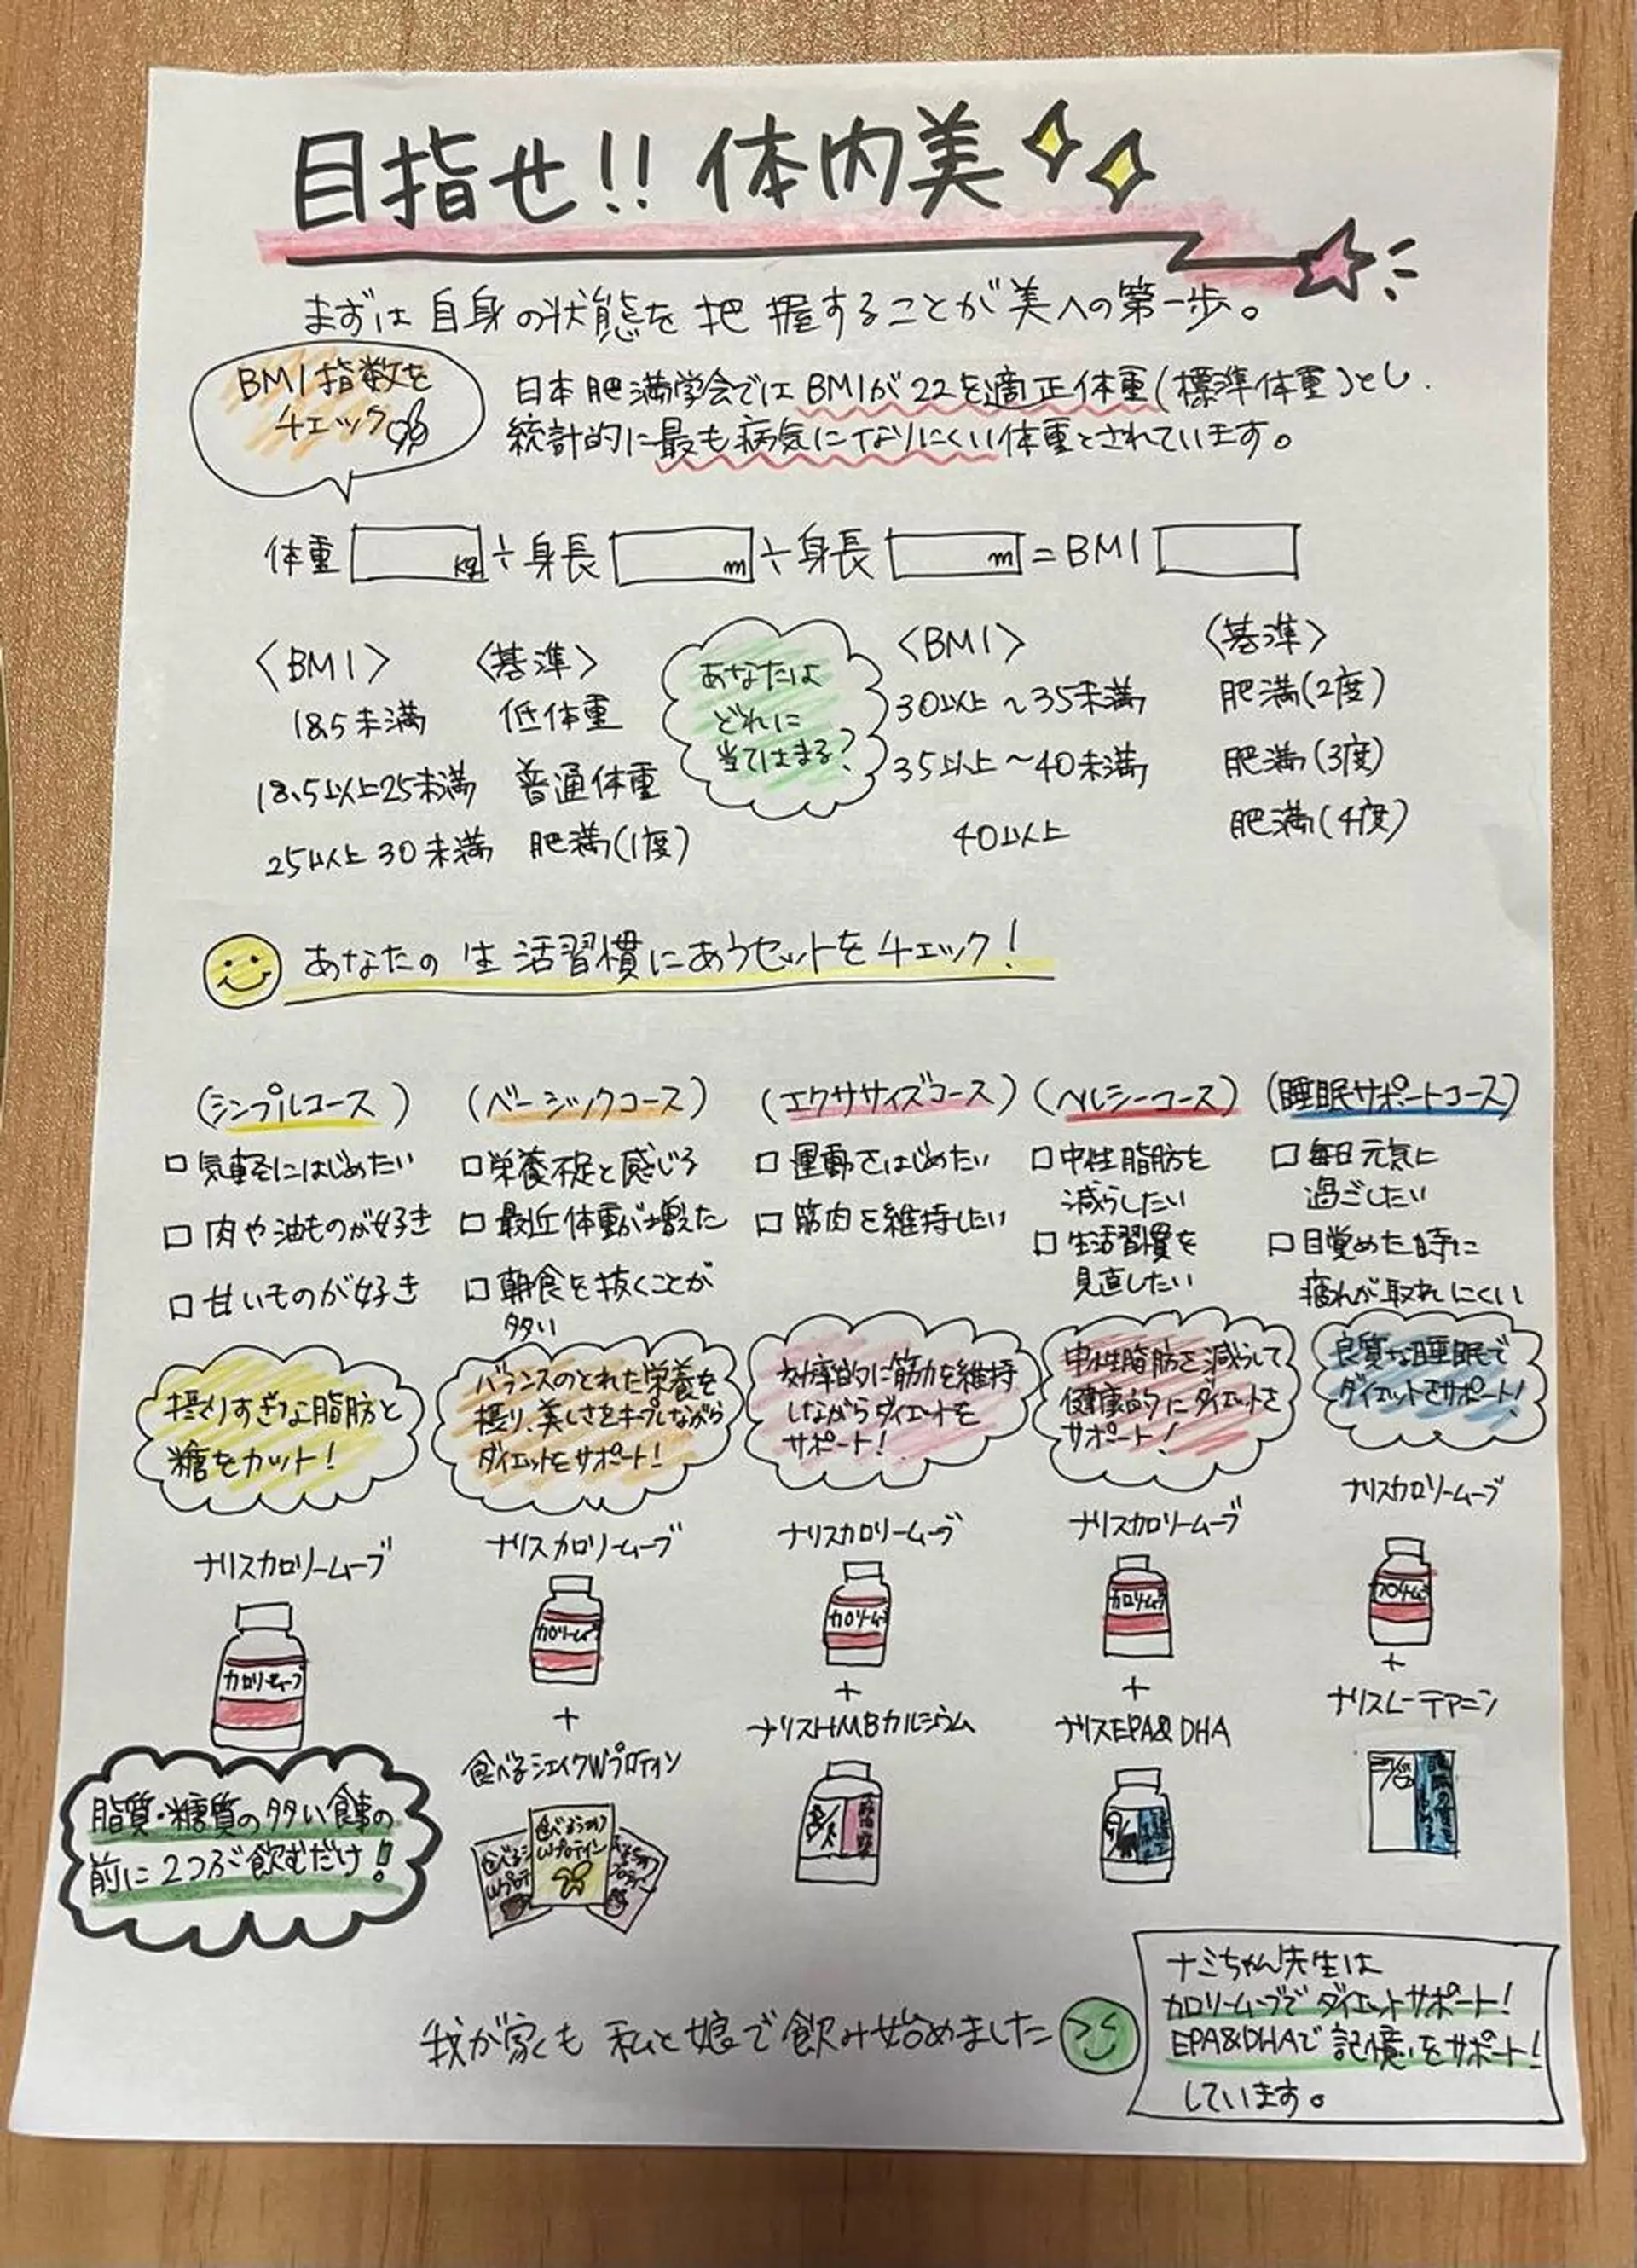 目指せ!! 体内美
まずは自身の状態を把握することが美への第一歩。
BMI指数を
チェック
日本肥満学会ではBMIが22を適正体重(標準体重)とし
統計的に最も病気になりにくい体重とされています。
体重 kg ÷ 身長 m ÷ 身長 m = BMI
〈BMI〉 〈基準〉
18.5未満 低体重
18.5以上25未満 普通体重
25以上30未満 肥満(1度)
あなたは
どれに
当てはまる?
〈BMI〉 〈基準〉
30以上〜35未満 肥満(2度)
35以上〜40未満 肥満(3度)
40以上 肥満(4度)
あなたの生活習慣にあうセットをチェック!
(シンプルコース)
□ 気軽にはじめたい
□ 肉や油ものが好き
□ 甘いものが好き
摂りすぎな脂肪と
糖をカット!
ナリスカロリームーブ
カロリームーブ
脂質・糖質の多い食事の
前に2つぶ飲むだけ!
(ベーシックコース)
□ 栄養不足と感じる
□ 最近体重が増えた
□ 朝食を抜くことが
多い
バランスのとれた栄養を
摂り、美しさをキープしながら
ダイエットをサポート!
ナリスカロリームーブ
カロリームーブ
+
食べるシェイクWプロテイン
(エクササイズコース)
□ 運動をはじめたい
□ 筋肉を維持したい
効率的に筋力を維持
しながらダイエットを
サポート!
ナリスカロリームーブ
カロリームーブ
+
ナリスHMBカルシウム
(ヘルシーコース)
□ 中性脂肪を
減らしたい
□ 生活習慣を
見直したい
中性脂肪を減らして
健康的にダイエットを
サポート!
ナリスカロリームーブ
カロリームーブ
+
ナリスEPA&DHA
(睡眠サポートコース)
□ 毎日元気に
過ごしたい
□ 目覚めた時に
疲れが取れにくい
良質な睡眠で
ダイエットをサポート!
ナリスカロリームーブ
カロリームーブ
+
ナリスL-テアニン
我が家くも 私と娘で飲み始めました
ナミちゃん先生は
カロリームーブでダイエットサポート!
EPA&DHAで記憶をサポート!
しています。